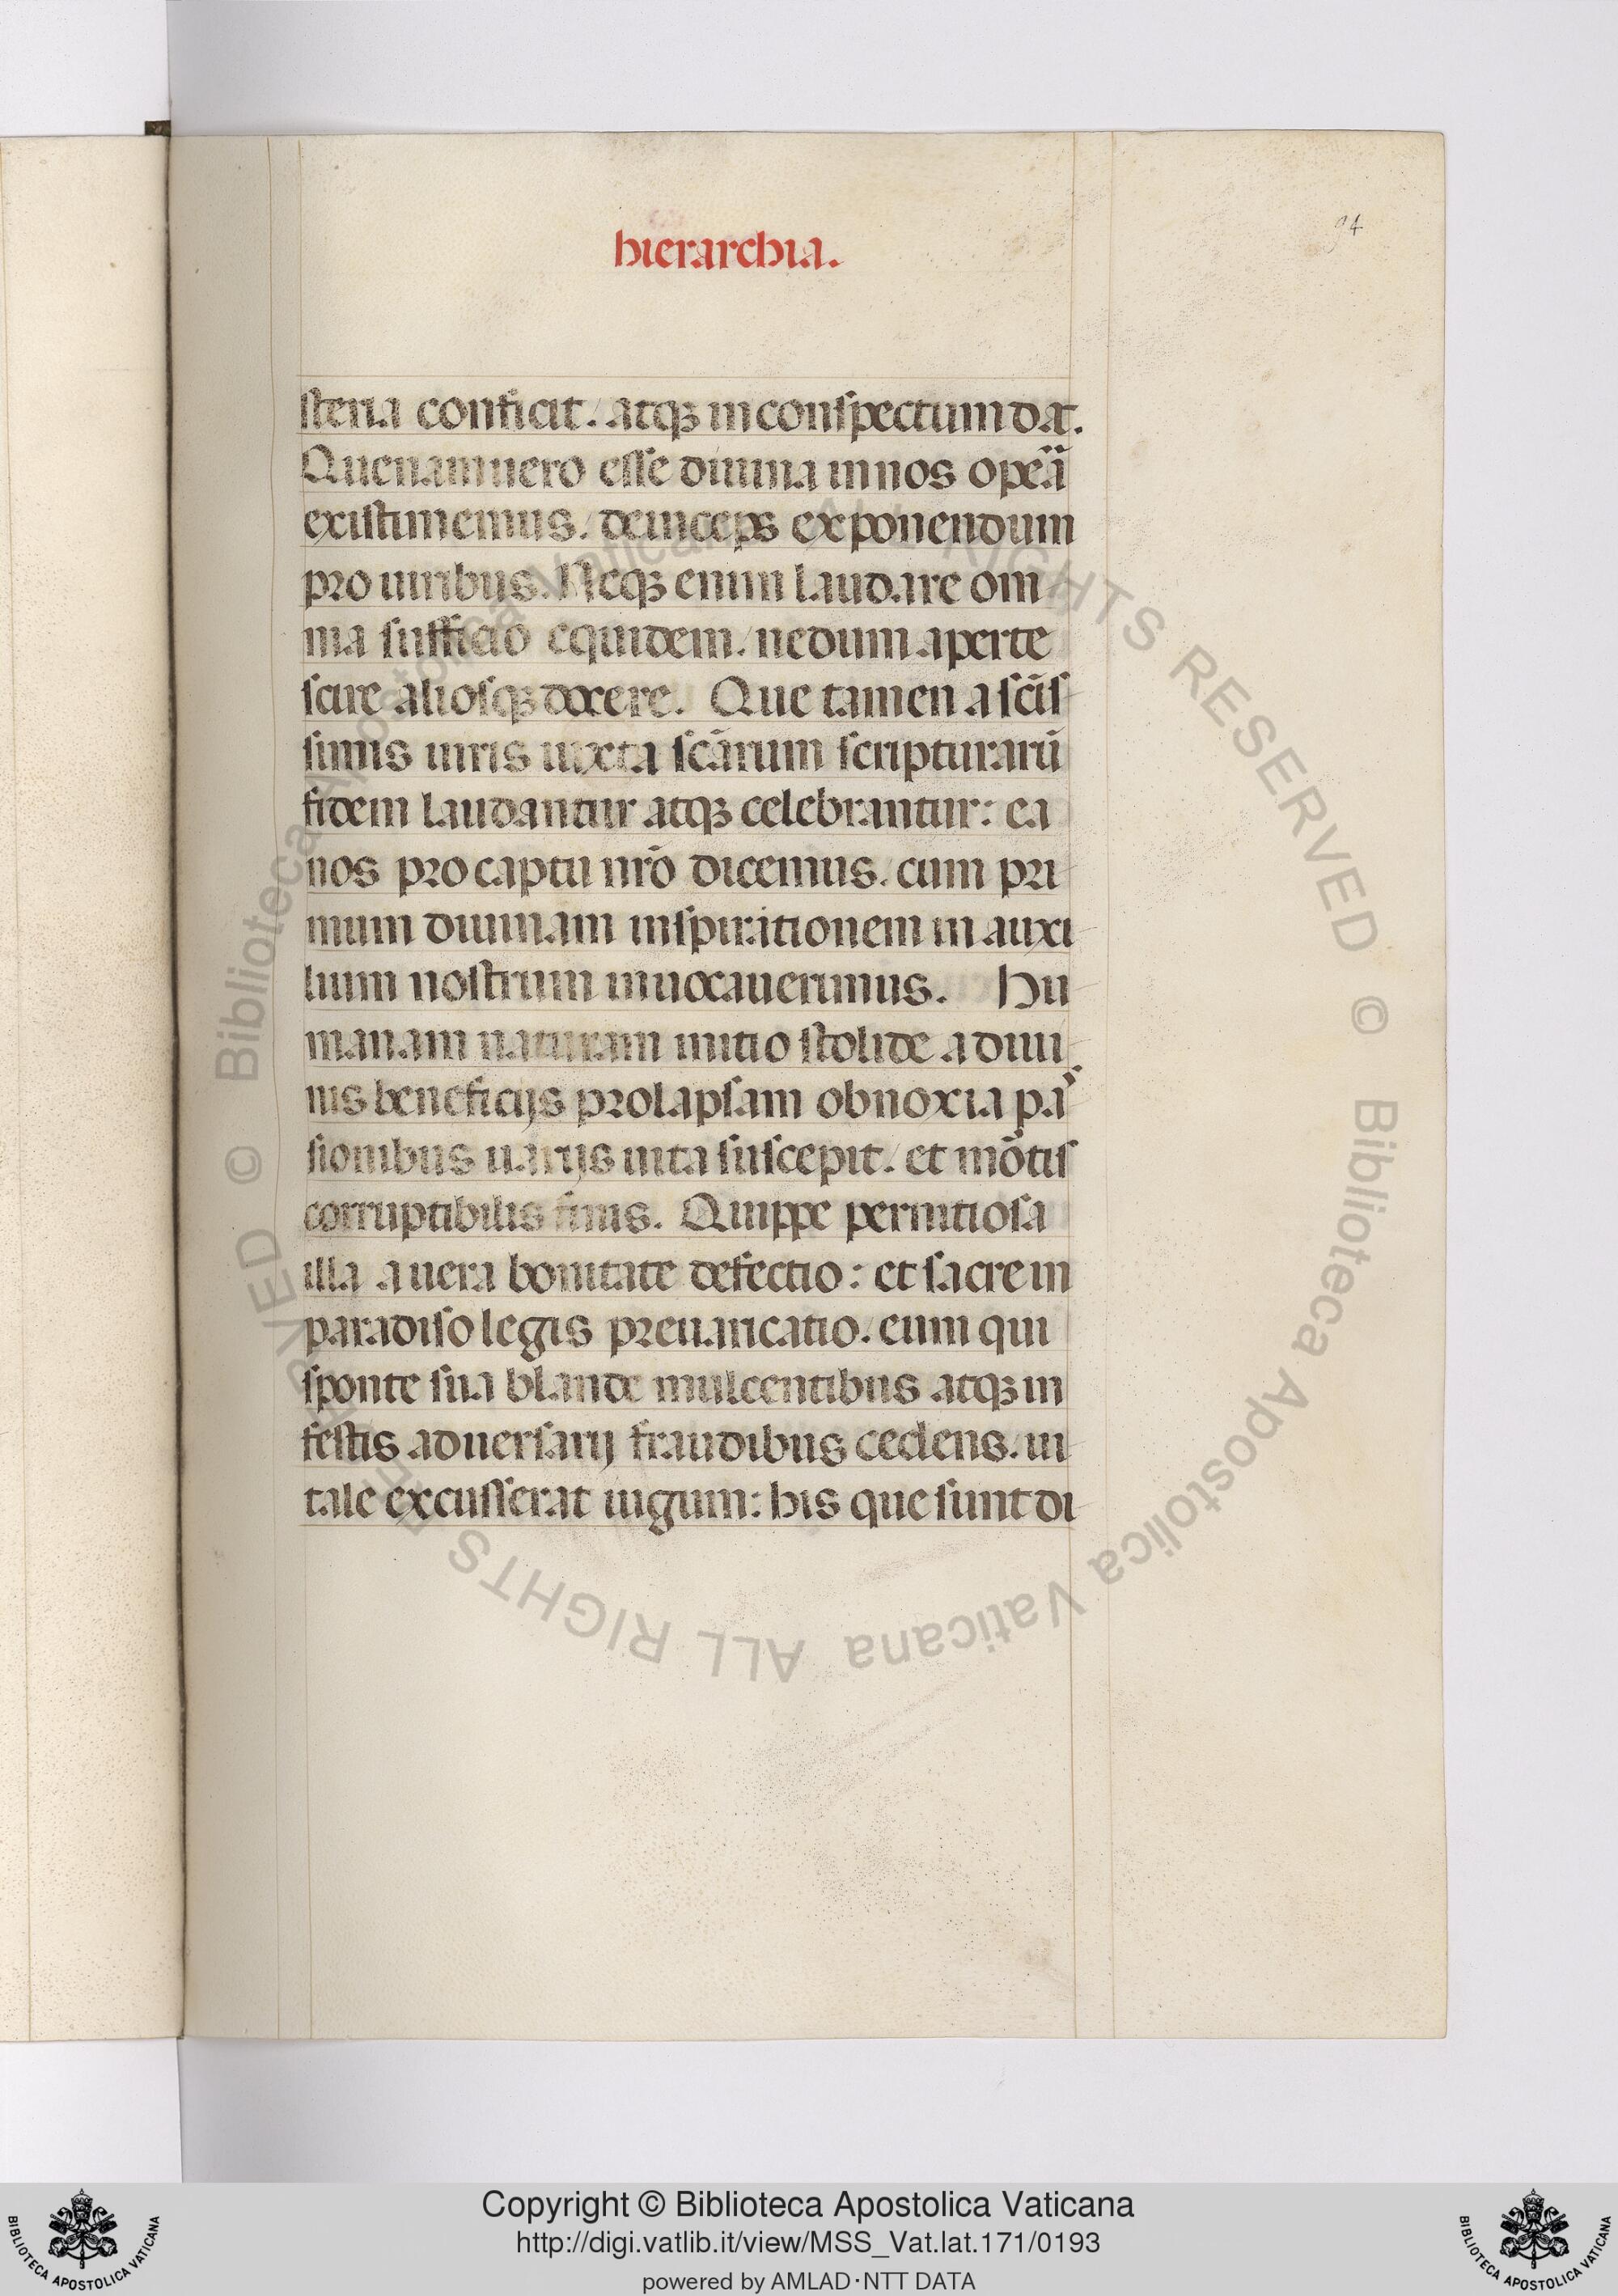 94
hierarchia.
steria conficit. atqꝫ in conspectum dat.
Quenam uero esse diuina in nos opeᷓa
existimemus. deinceps exponendum
pro uiribus. Neqꝫ enim laudare om
nia sufficio equidem. nedum aperte
scire aliosqꝫ docere. Que tamen a sc̄is
simis uiris iuxta sc̄arum scripturarū
fidem laudantur atqꝫ celebrantur: ea
nos pro captu nr̄o dicemus. cum pri
mum diuinam inspirationem in auxi
lium nostrum inuocauerimus. Hu
manam naturam initio stolide a diui
nis beneficijs prolapsam obnoxia pas
sionibus uarijs uita suscepit. et mōtis
corruptibilis finis. Quippe pernitiosa
illa a uera bonitate defectio: et sacre in
paradiso legis preuaricatio. eum qui
sponte sua blande mulcentibus atqꝫ in
festis aduersarij fraudibus cedens. ui
tale excusserat iugum: his que sunt di
© Biblioteca Apostolica Vaticana ALL RIGHTS RESERVED © Biblioteca Apostolica Vaticana ALL RIGHTS RESERVED
Copyright © Biblioteca Apostolica Vaticana
http://digi.vatlib.it/view/MSS_Vat.lat.171/0193
powered by AMLAD·NTT DATA
BIBLIOTECA APOSTOLICA VATICANA
BIBLIOTECA APOSTOLICA VATICANA